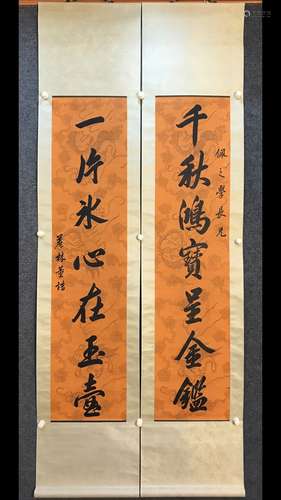 千秋鴻寶呈金鑑
佩之學長兄
一片冰心在玉壺
董誥